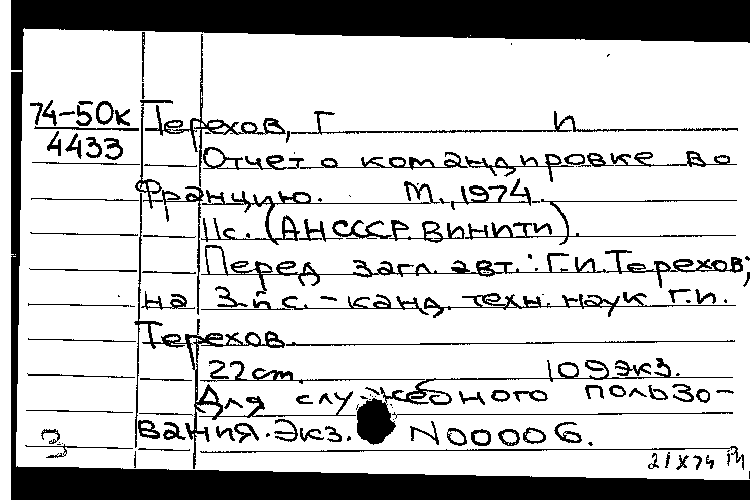 74-50к Терехов, Г И
4433
Отчет о командировке во
Францию. М., 1974.
11с. (АН СССР. ВИНИТИ).
Перед загл. авт.: Г.И. Терехов;
на 3.й с. - канд. техн. наук Г.И.
Терехов.
22 cm. 109 экз.
Для служебного пользо-
вания. Экз. N00006.
3
21 X 74